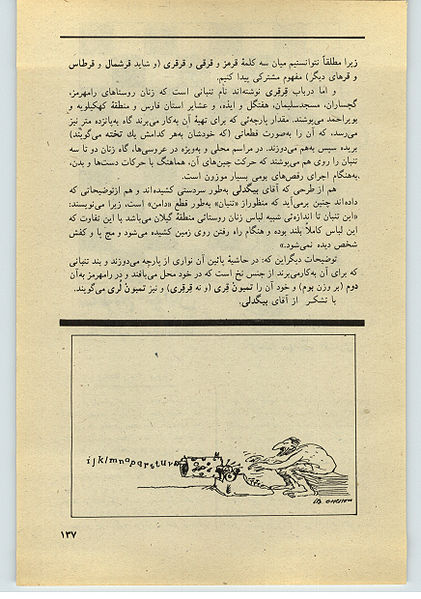 زیرا مطلقاً نتوانستیم میان سه کلمهٔ قرمز و قرقی و قرقری (و شاید قرشمال و قرطاس
و قرهای دیگر) مفهوم مشترکی پیدا کنیم.
و اما درباب قرقری نوشته‌اند نام تنبانی است که زنان روستاهای رامهرمز،
گچساران، مسجدسلیمان، هفتگل و ایذه، و عشایر استان فارس و منطقهٔ کهکیلویه و
بویراحمد می‌پوشند. مقدار پارچه‌ئی که برای تهیهٔ آن به‌کار می‌برند گاه به‌پانزده متر نیز
می‌رسد، که آن را به‌صورت قطعاتی (که خودشان به‌هر کدامش یك تخته می‌گویند)
بریده سپس به‌هم می‌دوزند. در مراسم محلی و به‌ویژه در عروسی‌ها، گاه زنان دو تا سه
تنبان را روی هم می‌پوشند که حرکت چین‌های آن، هماهنگ با حرکات دست‌ها و بدن،
به‌هنگام اجرای رقص‌های بومی بسیار موزون است.
هم از طرحی که آقای بیگدلی به‌طور سردستی کشیده‌اند و هم ازتوضیحاتی که
داده‌اند چنین برمی‌آید که منظوراز «تنبان» به‌طور قطع «دامن» است، زیرا می‌نویسند:
«این تنبان تا اندازه‌ئی شبیه لباس زنان روستائی منطقهٔ گیلان می‌باشد با این تفاوت که
این لباس کاملاً بلند بوده و هنگام راه رفتن روی زمین کشیده می‌شود و مچ پا و کفش
شخص دیده نمی‌شود.»
توضیحات دیگراین که: در حاشیهٔ پائین آن نواری از پارچه می‌دوزند و بند تنبانی
که برای آن به‌کارمی‌برند از جنس نخ است که در خود محل می‌بافند و در رامهرمز به‌آن
دوم (بر وزن بوم) و خود آن را تمبون قری (و نه قرقری) و نیز تمبون لری می‌گویند.
با تشکر از آقای بیگدلی.
ijklmnopqrstuv
۱۳۷